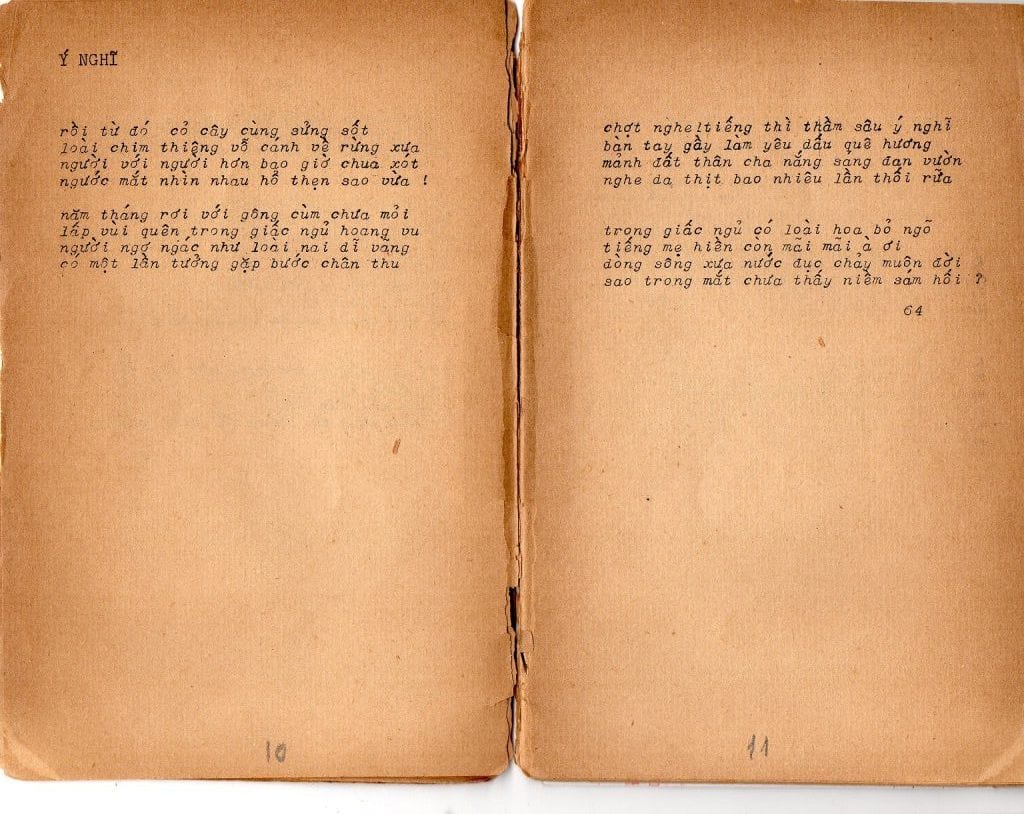 Ý NGHĨ
rồi từ đó cỏ cây cùng sửng sốt
loài chim thiêng vỗ cánh về rừng xưa
người với người hơn bao giờ chua xót
ngước mắt nhìn nhau hổ thẹn sao vừa !
năm tháng rơi với gông cùm chưa mỏi
lấp vùi quên trong giấc ngủ hoang vu
người ngợ ngác như loài nai dĩ vãng
có một lần tưởng gặp bước chân thu
10
chợt ngheltiếng thì thầm sâu ý nghĩ
bàn tay gầy làm yêu dấu quê hương
mảnh đất thân cha nắng sang đan vườn
nghe da thịt bao nhiêu lần thối rữa
trong giấc ngủ có loài hoa bỏ ngõ
tiếng mẹ hiền còn mãi mãi à ơi
dòng sông xưa nước đục chảy muôn đời
sao trong mắt chưa thấy niềm sám hối ?
64
11